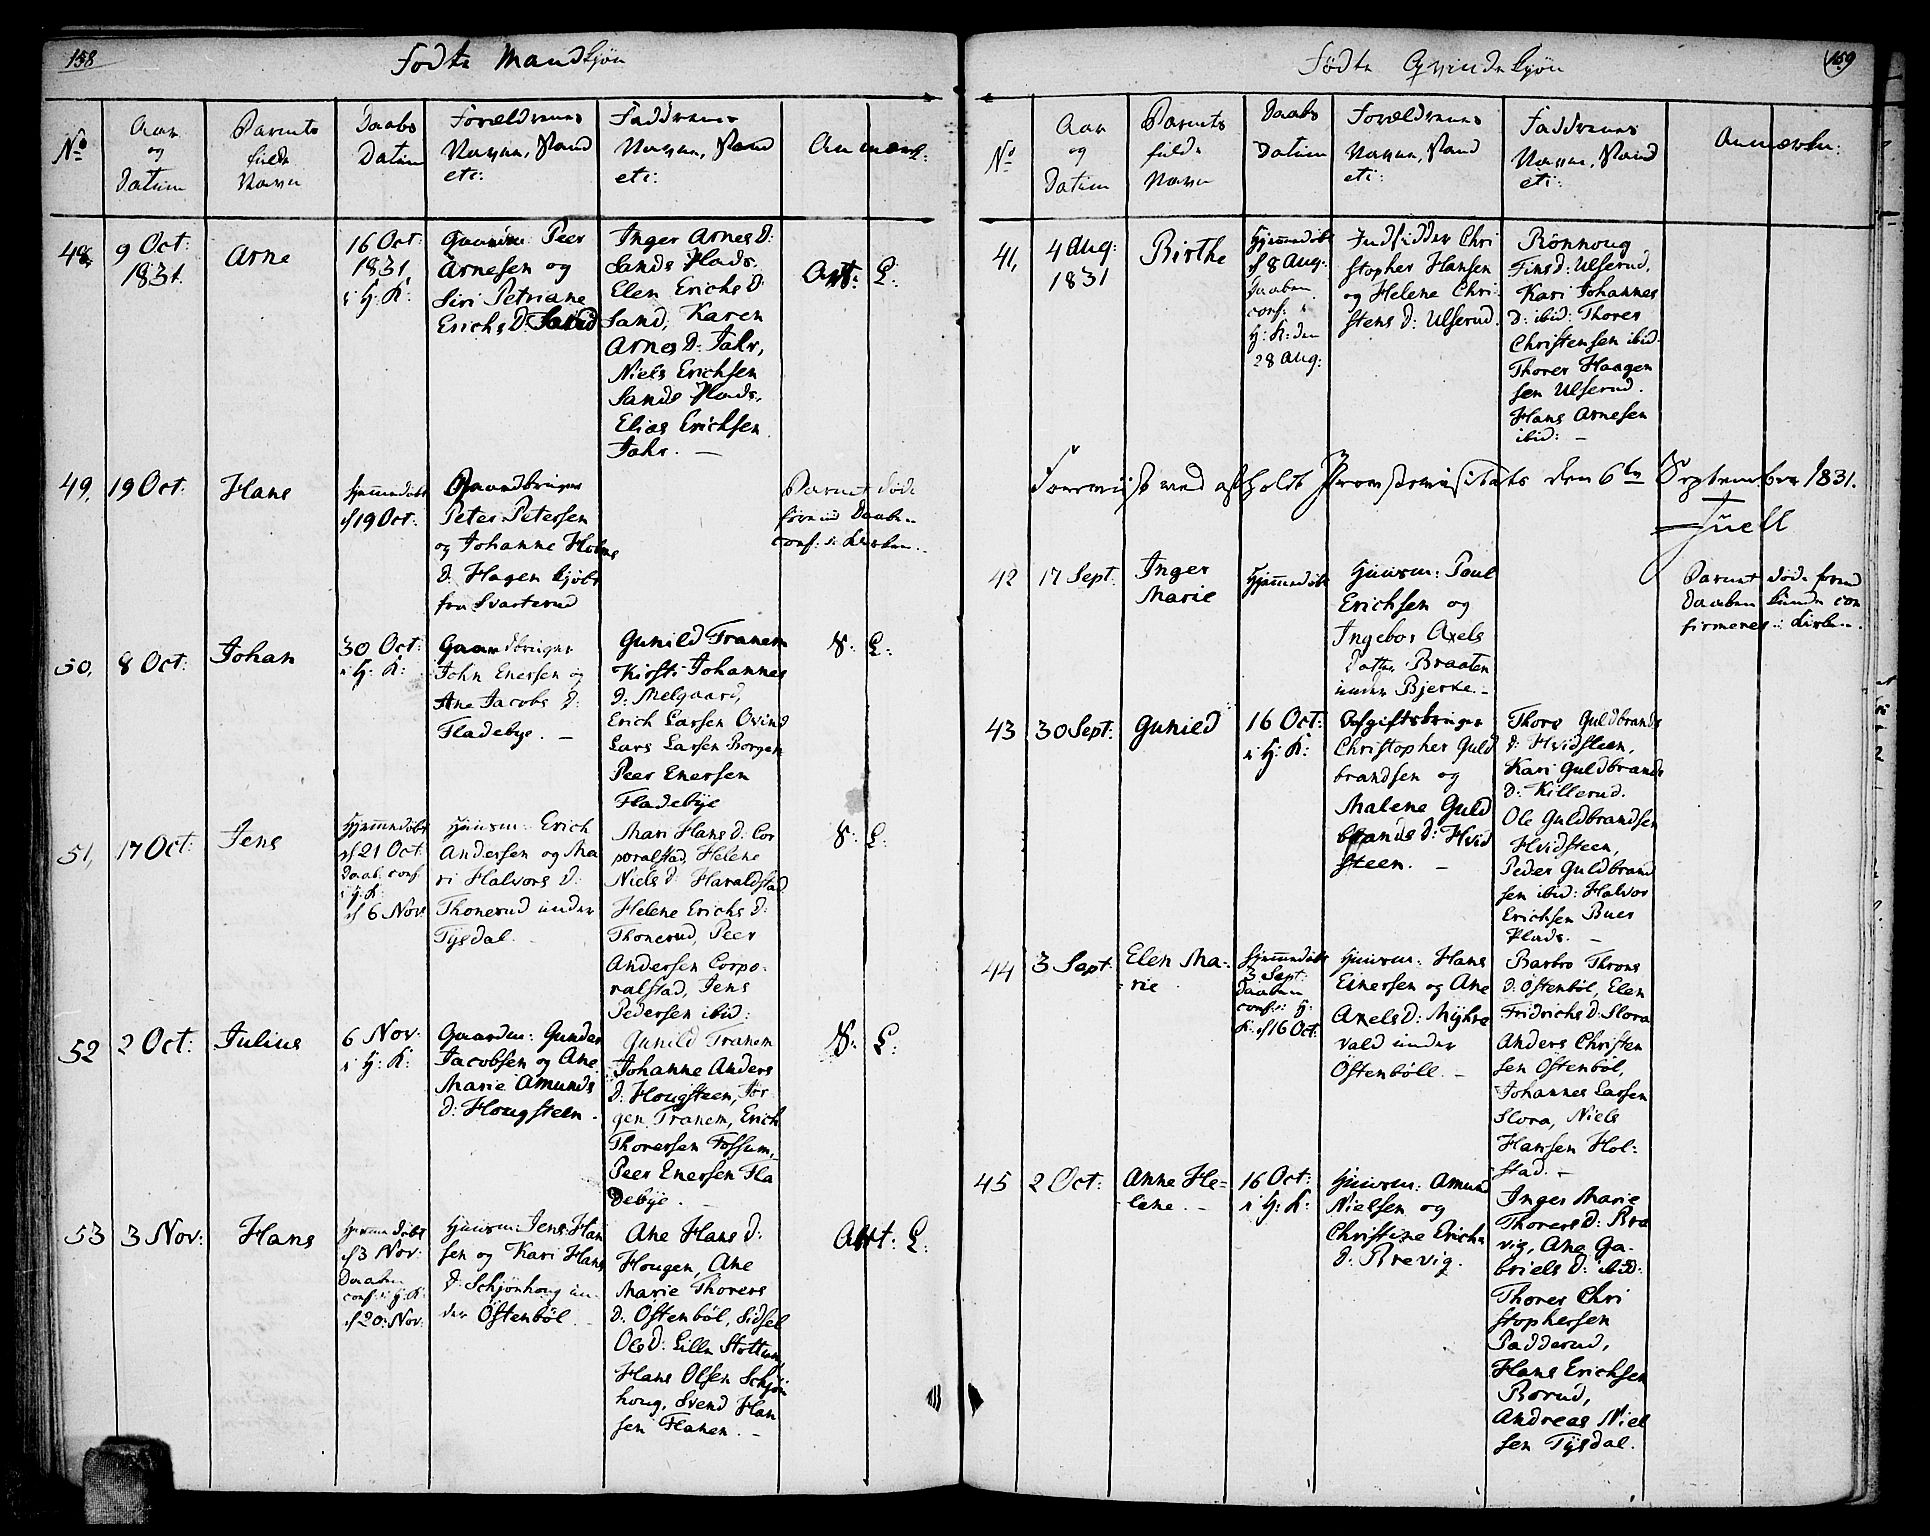 158
Födte Mandkjön
No
Aar
og
Datum
Barnets
fulde
Navn
Daabs
Datum
Forældrenes
Navne, Stand
etc:
Faddrenes
Navne, Stand
etc:
Anmærk:
48,
9 Oct:
1831.
Arne
16 Oct:
1831
i H: K:
Gaardm: Peer
Arnesen og
Siri Petriane
Erichs D: Sand
Inger Arnes D:
Sands Plads.
Elen Erichs D:
Sand, Karen
Arnes D: Jahr,
Niels Erichsen
Sands Plads,
Elias Erichsen
Jahr. —
Art: L:
49,
19 Oct:
Hans
Hjemmedöbt
d 19 Oct:
Gaardbruger
Peter Petersen
og Johanne Holms
D: Hagen kjöbt
fra Svarterud
Barnet döde
förend Daaben
conf: i Kirken.
50,
8 Oct:
Johan
30 Oct:
i H: K:
Gaardbruger
John Enersen og
Ane Jacobs D:
Fladebye. —
Gunild Tranem
Kirsti Johannes
D: Melgaard,
Erich Larsen Ovind
Lars Larsen Borgen
Peer Enersen
Fladebye
S: L:
51,
17 Oct:
Jens
Hjemmedöbt
d 21 Oct:
Daab. conf
i H: K:
d 6 Nov:
Huusm: Erich
Andersen og Ma
ri Halvors D:
Thonerud under
Tysdal. —
Mari Hans D: Cor
poralstad, Helene
Niels D: Haraldstad
Helene Erichs D:
Thonerud, Peer
Andersen Corpo-
ralstad, Jens
Pedersen ibid:
S: L:
52
2 Oct:
Julius
6 Nov:
i H: K:
Gaardm: Gunder
Jacobsen og Ane
Marie Amunds
D: Hougsteen.
Gunild Tranem
Johanne Anders
D: Hougsteen, Jör
gen Tranem, Erich
Thoresen Fossum,
Peer Enersen Fla
debye.
S: L:
53
3 Nov:
Hans
Hjemmedöbt
d 3 Nov:
Daaben
conf: i H: K:
d 20: Nov:
Huusm: Jens Han
sen og Kari Hans
D: Schjönhoug un-
der Östenböl. —
Ane Hans D:
Hougen, Ane
Marie Thorers
D: Östenböl, Sidsel
Ols D: Lille Stottum
Hans Olsen Schjön
houg, Svend Han
sen Flanen. —
Art: L:
159
Födte Qvindekjön
No
Aar
og
Datum
Barnets
fulde
Navn
Daabs
Datum
Forældrenes
Navne, Stand
etc:
Faddrenes
Navne, Stand
etc:
Anmærkn:
41,
4 Aug:
1831
Birthe
Hjemmedöbt
d 8 Aug:
Daaben
conf: i
H: K: den
28 Aug:
Indsidder Chri
stopher Hansen
og Helene Chri
stens D: Ulserud.
Rönnoug
Fins D: Ulserud,
Kari Johannes
D: ibid: Thorer
Christensen ibid:
Thorer Haagen
sen Ulserud.
Hans Arnesen
ibid: —
Foreviist ved afholdt Provstevisitats den 6te September 1831.
Juell
42
17 Sept:
Inger
Marie
Hjemmedöbt
Huusm: Poul
Erichsen og
Ingebor Axels
Datter Braaten
under Bjerke. —
Barnet döde forend
Daaben kunde con
firmeres i Kirken.
43
30 Sept:
Gunild
16 Oct:
i H: K:
Afgiftsbruger
Christopher Guld
brandsen og
Malene Guld
brands D: Hvid
steen. —
Thore Guldbrands
D: Hvidsteen,
Kari Guldbrands
D: Killerud.
Ole Guldbrandsen
Hvidsteen,
Peder Guldbrand
sen ibid: Halvor
Erichsen Buer
Plads. —
44
3 Sept:
Elen Ma-
rie
Hjemmedöbt
3 Sept:
Daaben
conf: i H:
K: d 16 Oct:
Huusm: Hans
Einersen og Ane
Axels D: Myhre
vald under
Östenböll. —
Barbro Throns
D: Östenböl, Elen
Fridrichs D: Slora
Anders Christen
sen Östenböl,
Johannes Larsen
Slora, Niels
Hansen Hol-
stad. —
45
2 Oct:
Anne He-
lene. —
16 Oct:
i H: K:
Huusm: Amund
Nielsen og
Christine Erichs
D: Brevig.
Inger Marie
Thorers D: Bre
vig, Ane Ga-
briels D: ibid:
Thorer Chri
stophersen
Padderud,
Hans Erichsen
Borud,
Andreas Niel
sen Tysdal.